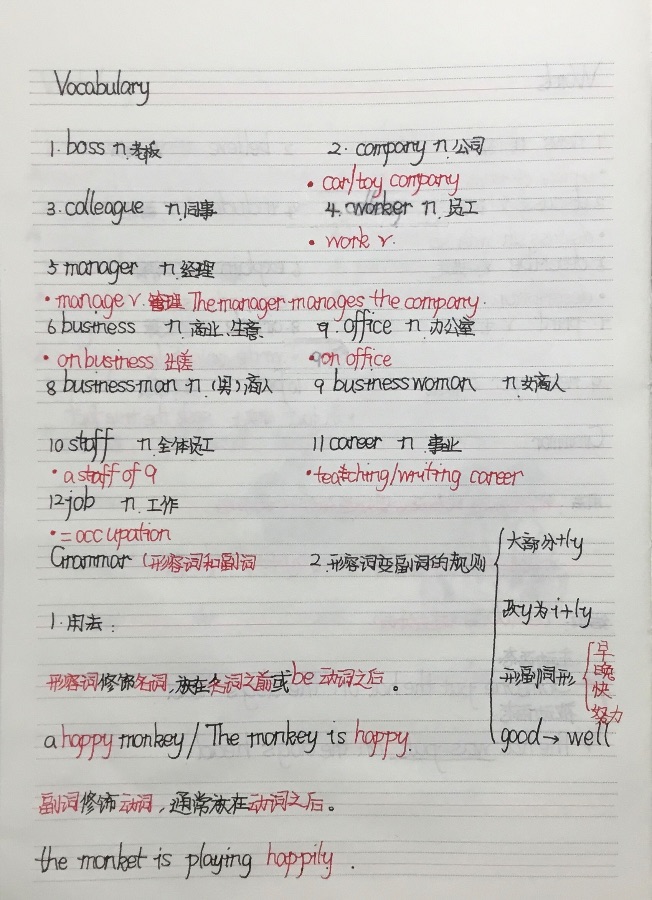 Vocabulary
1. boss n.老板 2. company n.公司
• car/toy company
3. colleague n.同事 4. worker n.员工
• work v.
5 manager n.经理
• manage v. 管理 The manager manages the company.
6 business n.商业、生意 9. office n.办公室
• on business 出差 • on office
8 businessman n.(男)商人 9 businesswoman n.女商人
10 staff n.全体员工 11 career n.事业
• a staff of 9 • teaching/writing career
12 job n.工作
• = occupation
Grammar (形容词和副词 2.形容词变副词的规则
大部分+ly
改y为i+ly
形副同形 早 晚 快 努力
good → well
1.用法:
形容词修饰名词,放在名词之前或be动词之后。
a happy monkey / The monkey is happy.
副词修饰动词,通常放在动词之后。
the monket is playing happily .